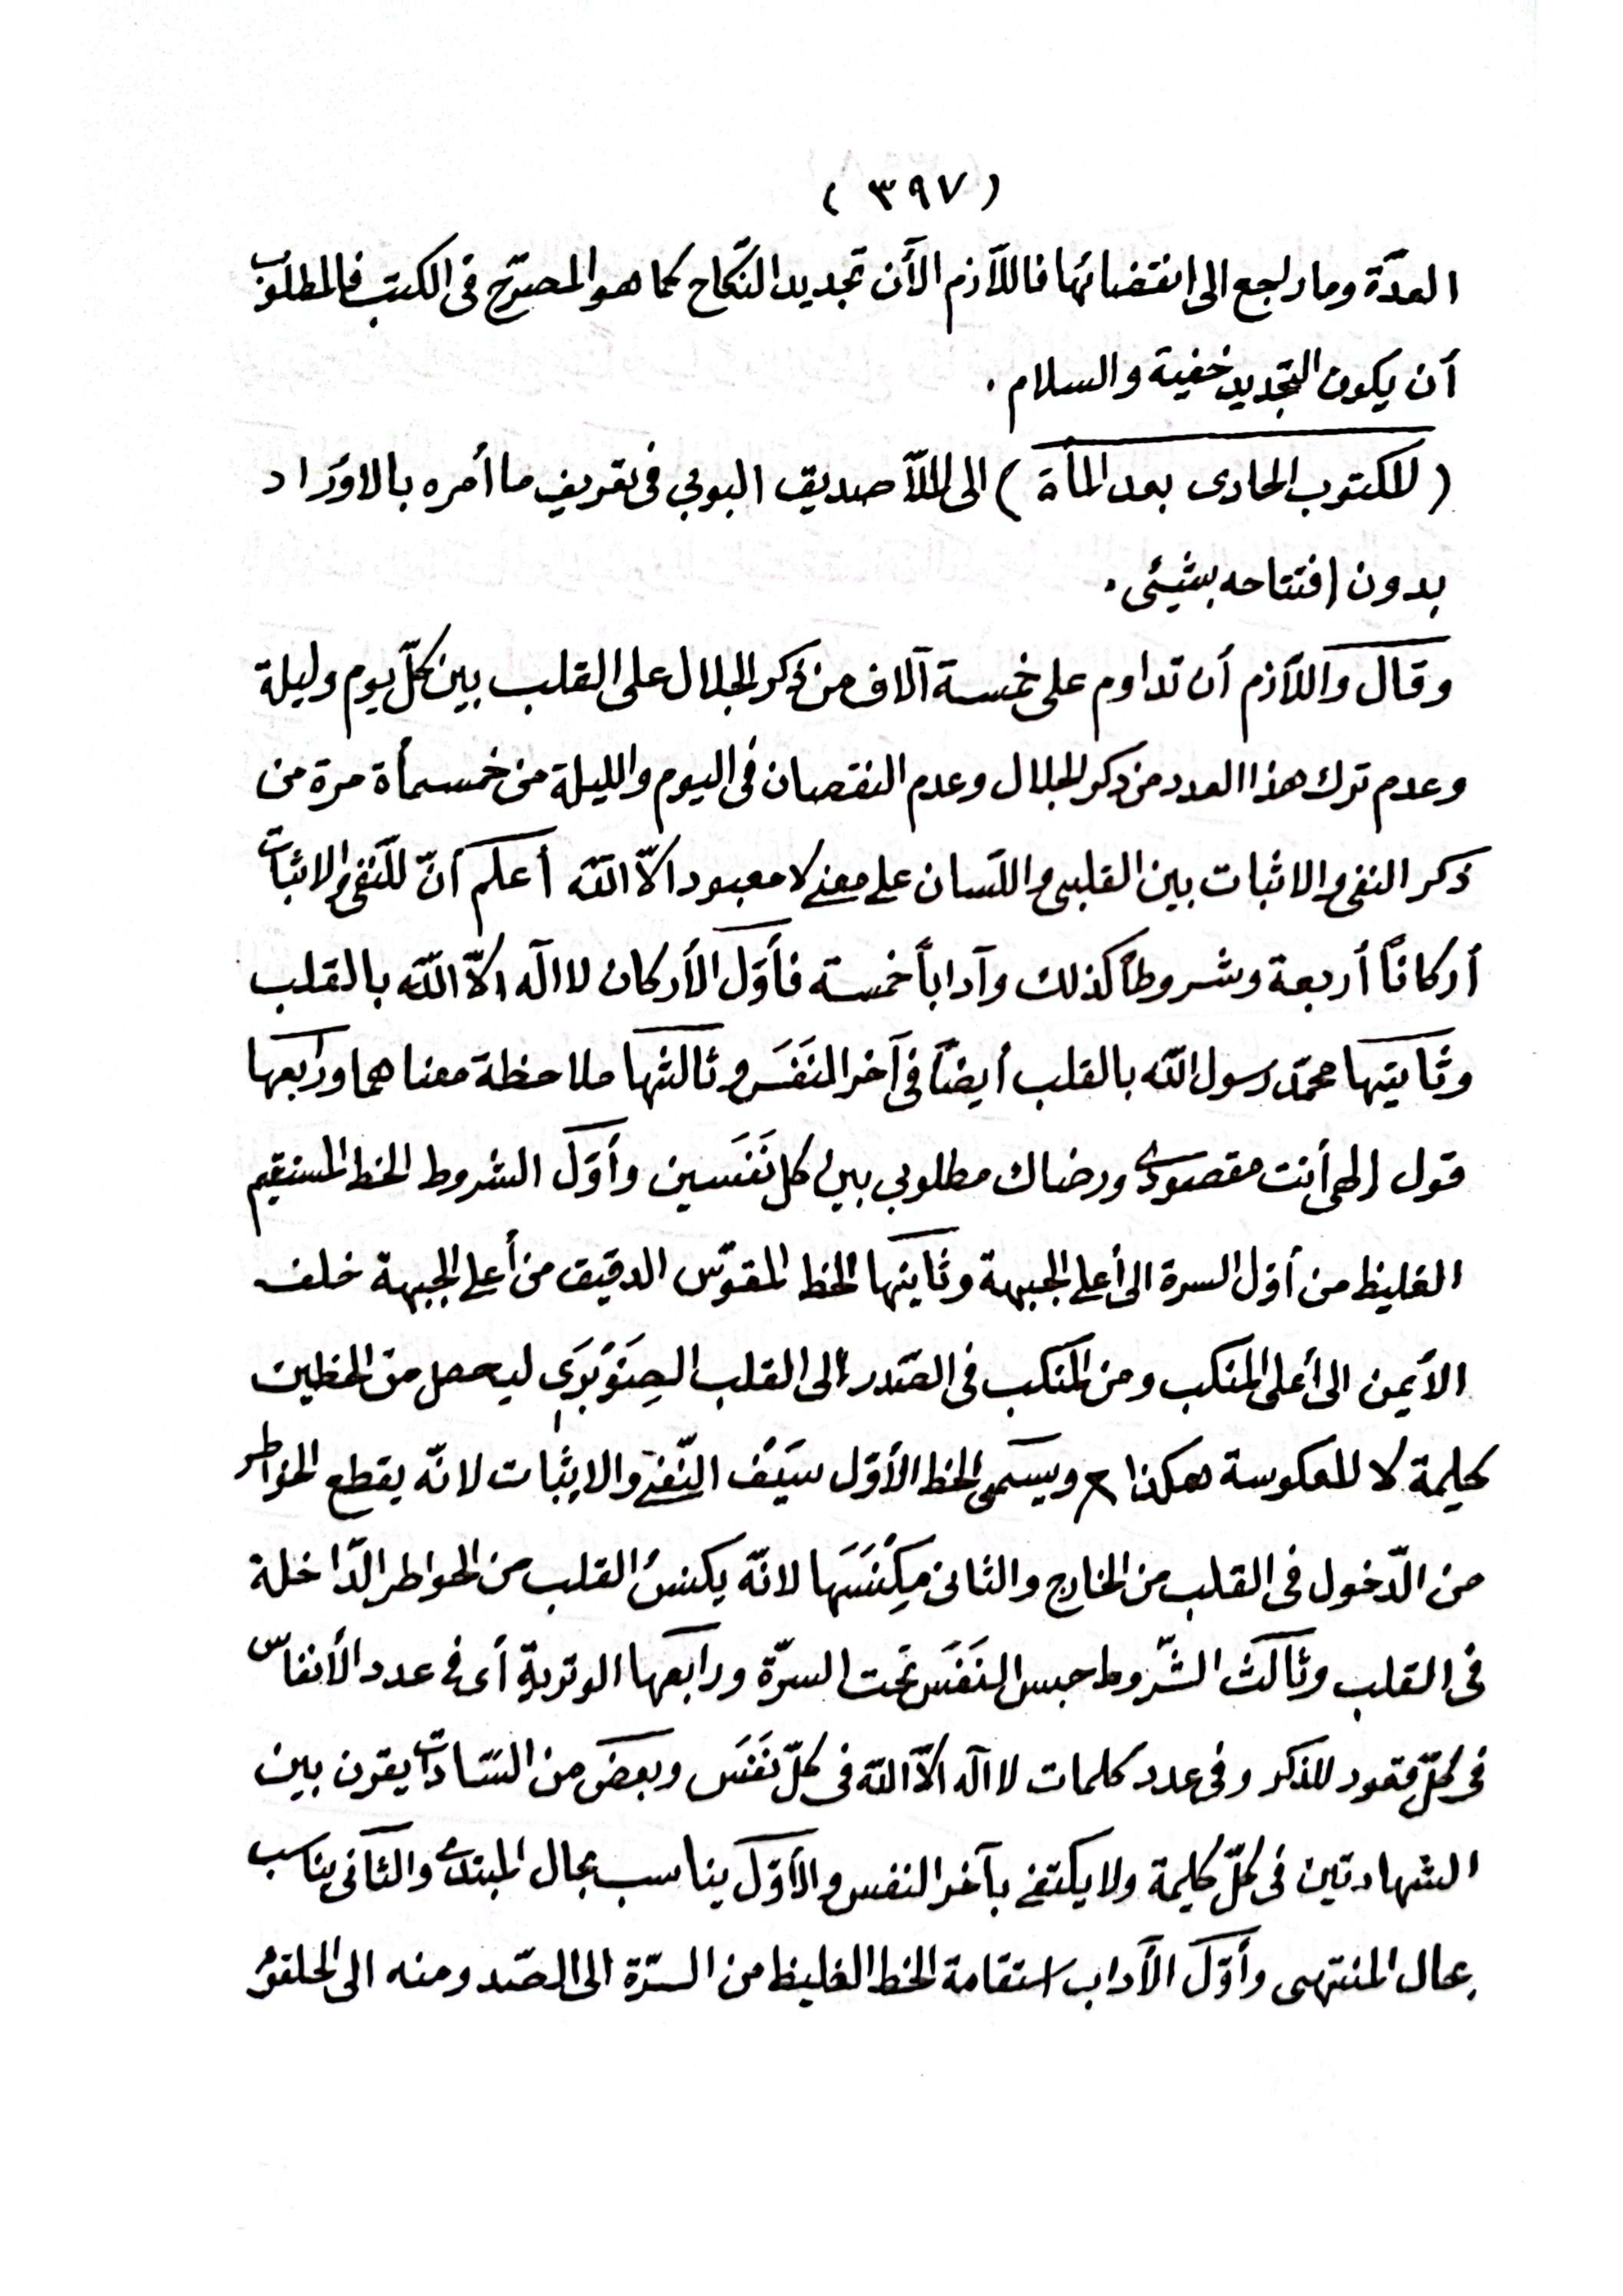 (٣٩٧)
العدّة وما راجع الى انقضائها فاللّازم الأن تجديد النّكاح كما هو المصرّح فى الكتب فالمطلوب
أن يكون التجديد خفية والسلام.
(المكتوب الحادى بعد المأة) الى الملّا صديق البوبى فى تعريف ما أمره بالاوراد
بدون افتتاحه بشيئى.
وقال واللّازم أن تداوم على خمسة آلاف من ذكر الجلال على القلب بين كلّ يوم وليلة
وعدم ترك هذا العدد من ذكر الجلال وعدم النقصان فى اليوم والليلة من خمسمأة مرة من
ذكر النفى والاثبات بين القلبى واللّسان على معنى لا معبود الّا اللّه أعلم أنّ للنّفى والاثبات
أركاناً أربعة وشروطاً كذلك وآداباً خمسة فأوّل الأركان لا اله الّا اللّه بالقلب
وثانيتها محمّد رسول اللّه بالقلب أيضاً فى آخر النَفَس وثالثها ملاحظة معناهما ورابعها
قول الهى أنت مقصودى ورضاك مطلوبى بين كل نَفَسين وأوّل الشروط الخط المستقيم
الغليظ من أوّل السرة الى أعلى الجبهة وثانيها الخط المقوّس الدقيق من أعلى الجبهة خلف
الأيمن الى أعلى المنكب ومن المنكب فى الصّدر الى القلب الصِنَوْبَرَى ليحصل من الخطين
كليمة لا المعكوسة هكذا ويسمى الخط الأوّل سَيْف النّفى والاثبات لانّه يقطع الخواطر
من الدّخول فى القلب من الخارج والثانى مِكْنَسَها لانّه يكنسُ القلب من الخواطر الدّاخلة
فى القلب وثالث الشّروط حبس النَفَس تحت السرّة ورابعها الوترية أى فى عدد الأنفاس
فى كلّ قعود للذكر وفى عدد كلمات لا اله الّا اللّه فى كلّ نَفَس وبعض من السّادات يقرن بين
الشهادتين فى كلّ كليمة ولا يكتفى بآخر النفس والأوّل يناسب بحال المبتدى والثانى يناسب
بحال المنتهى وأوّل الآداب استقامة الخط الغليظ من السرّة الى الصّدر ومنه الى الحلقوم